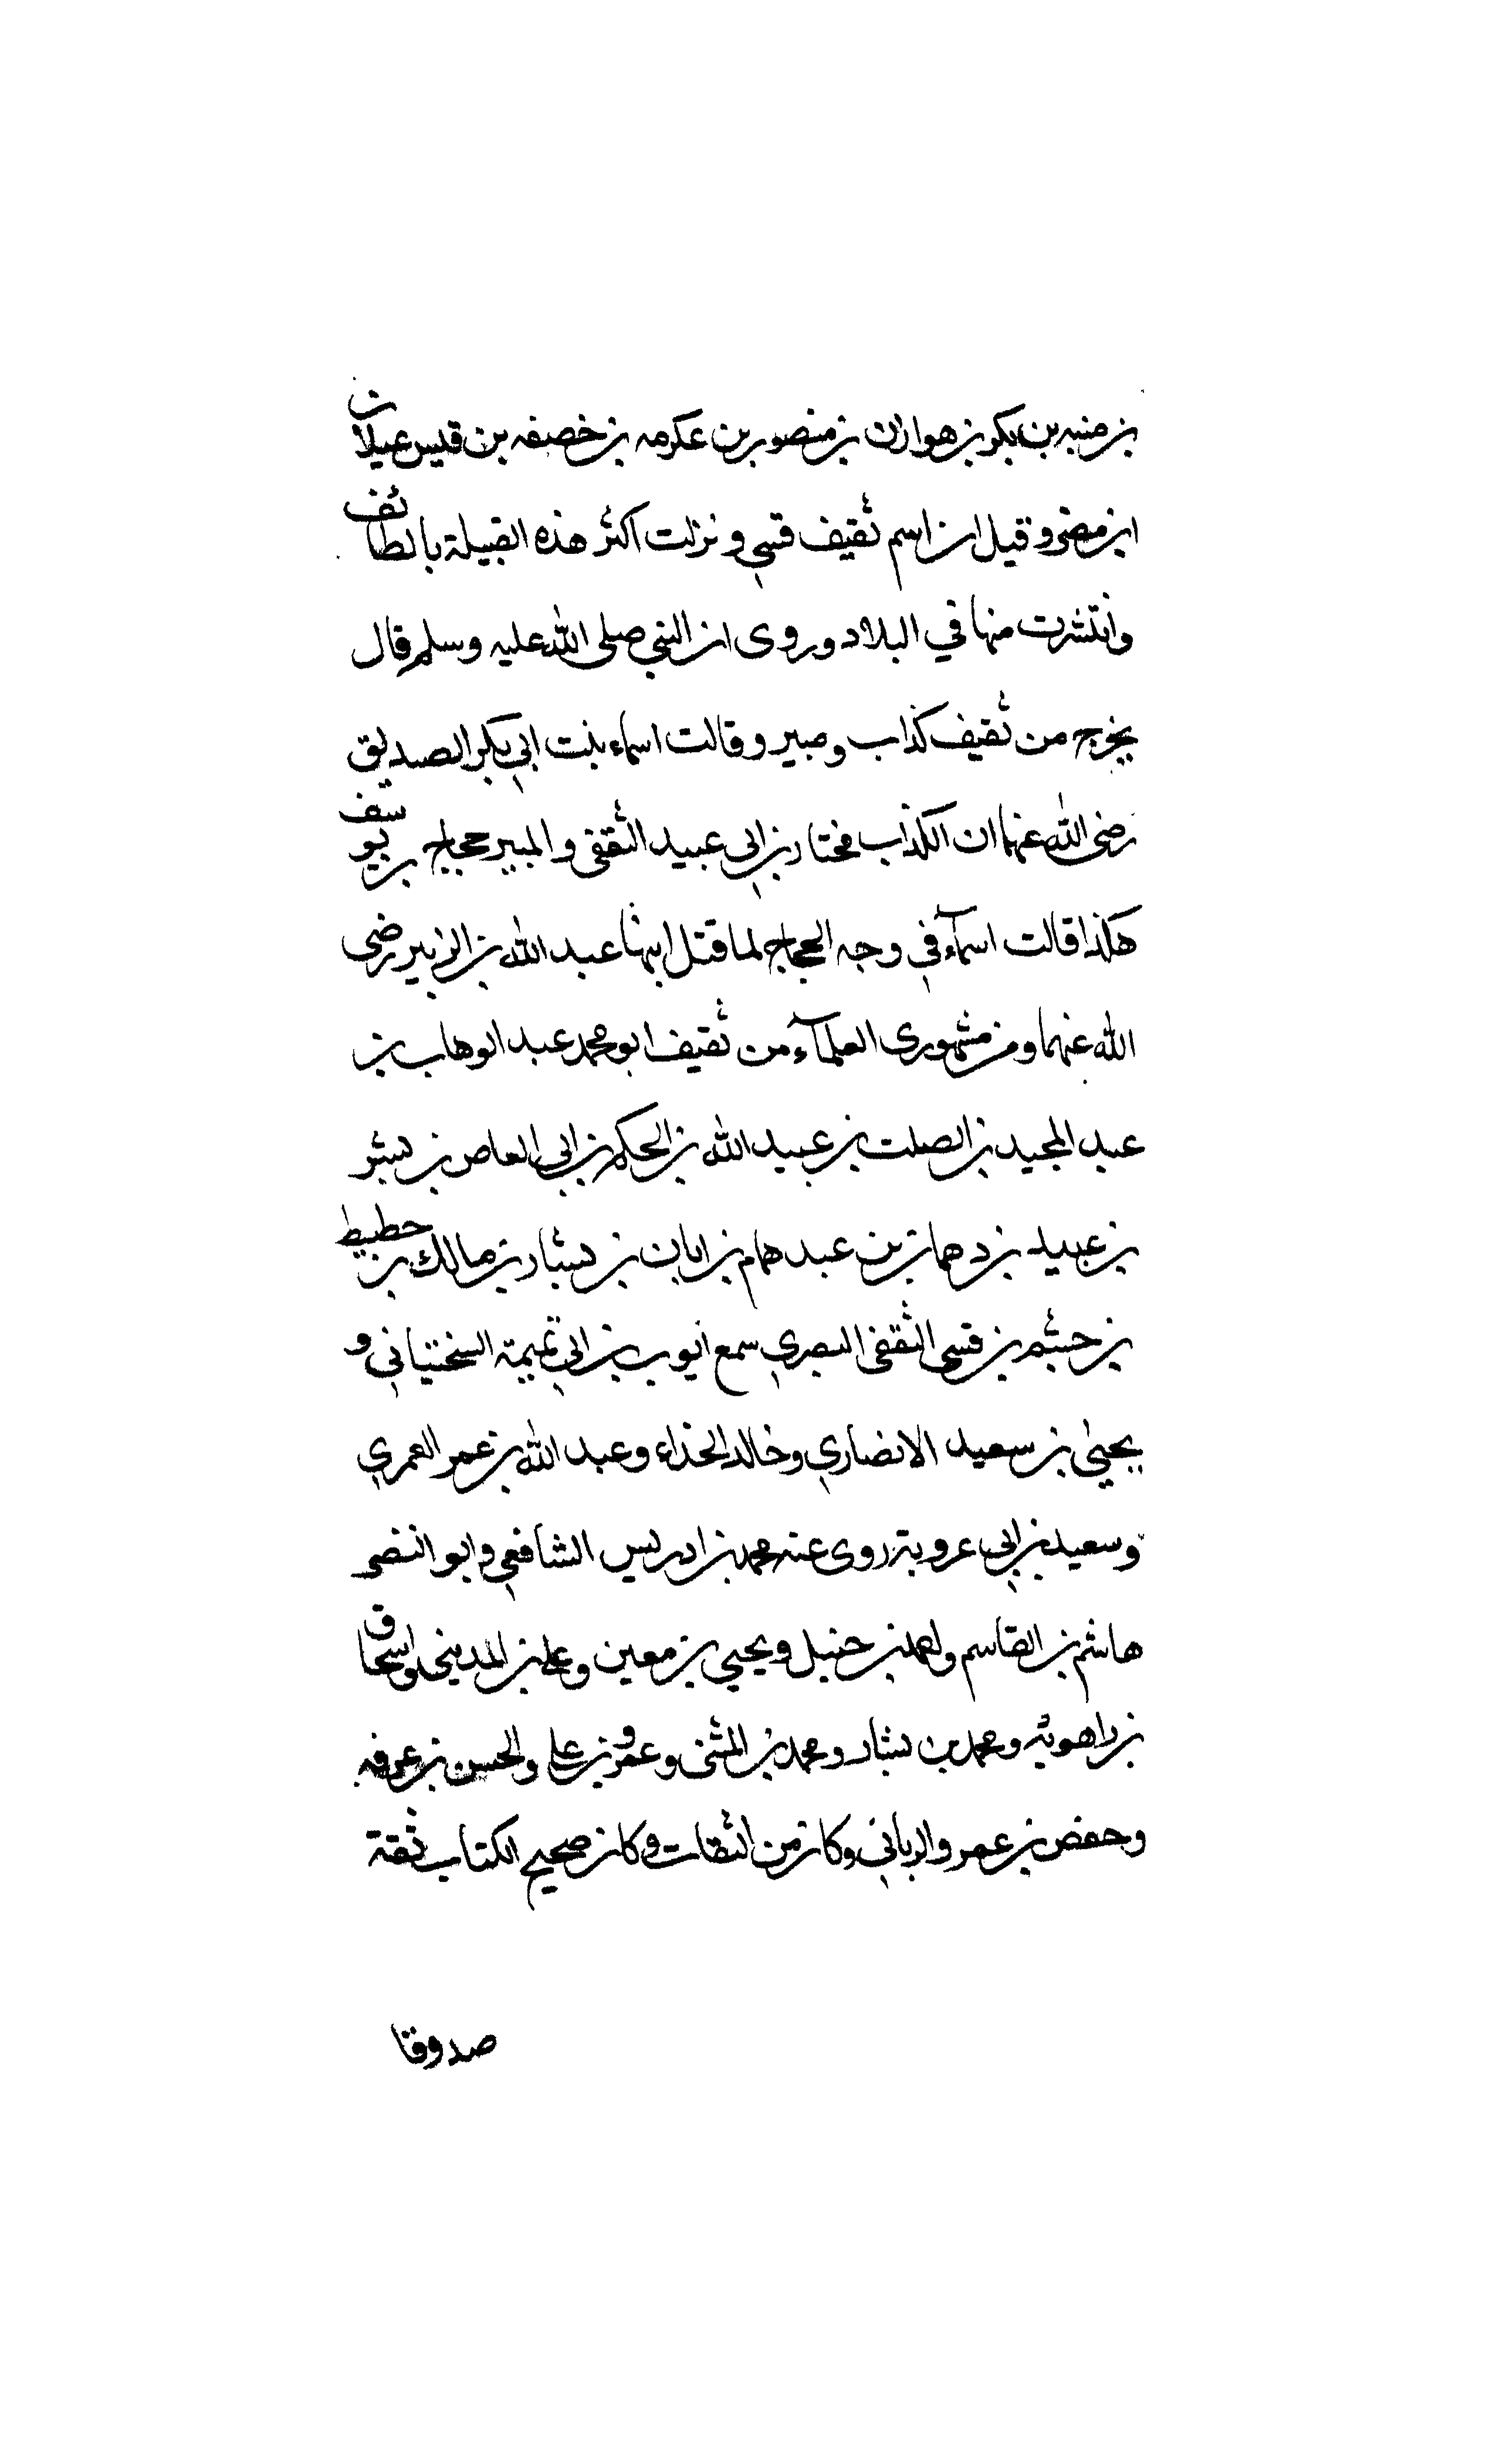 بن منبه بن بكر بن هوازن بن منصور بن عكرمه بن خصفه بن قيس عيلان
ابن مضر وقيل ان اسم ثقيف قسي ونزلت اكثر هذه القبيلة بالطائف
وانتشرت منها في البلاد وروى ان النبي صلى الله عليه وسلم قال
يخرج من ثقيف كذاب ومبير وقالت اسماء بنت ابي بكر الصديق
رضى الله عنهما ان الكذاب مختار بن ابي عبيد الثقفى والمبير حجاج بن يوسف
هكذا قالت اسمآء في وجه الحجاج لما قتل ابنها عبد الله بن الزبير رضى
الله عنهما ومن مشهورى العلمآء من ثقيف ابو محمد عبد الوهاب بن
عبد المجيد بن الصلت بن عبيد الله بن الحكم بن ابي العاص بن بشر
بن عبيد بن دهمان بن عبد همام بن ابان بن بشار بن مالك بن حطيط
بن جشم بن قسى الثقفى البصري سمع ايوب بن ابي تميمة السختياني و
يحيى بن سعيد الانصاري وخالد الحذاء وعبد الله بن عمر العمري
وسعيد بن ابي عروبة روى عنه محمد بن ادريس الشافعي وابو النضر
هاشم بن القاسم واحمد بن حنبل ويحيي بن معين وعلي بن المديني واسحاق
بن راهويه ومحمد بن بشار ومحمد بن المثنى وعمرو بن على والحسن بن عرفه
وحفص بن عمرو الرباني وكان من الثقات وكان صحيح الكتاب ثقة
صدوقا